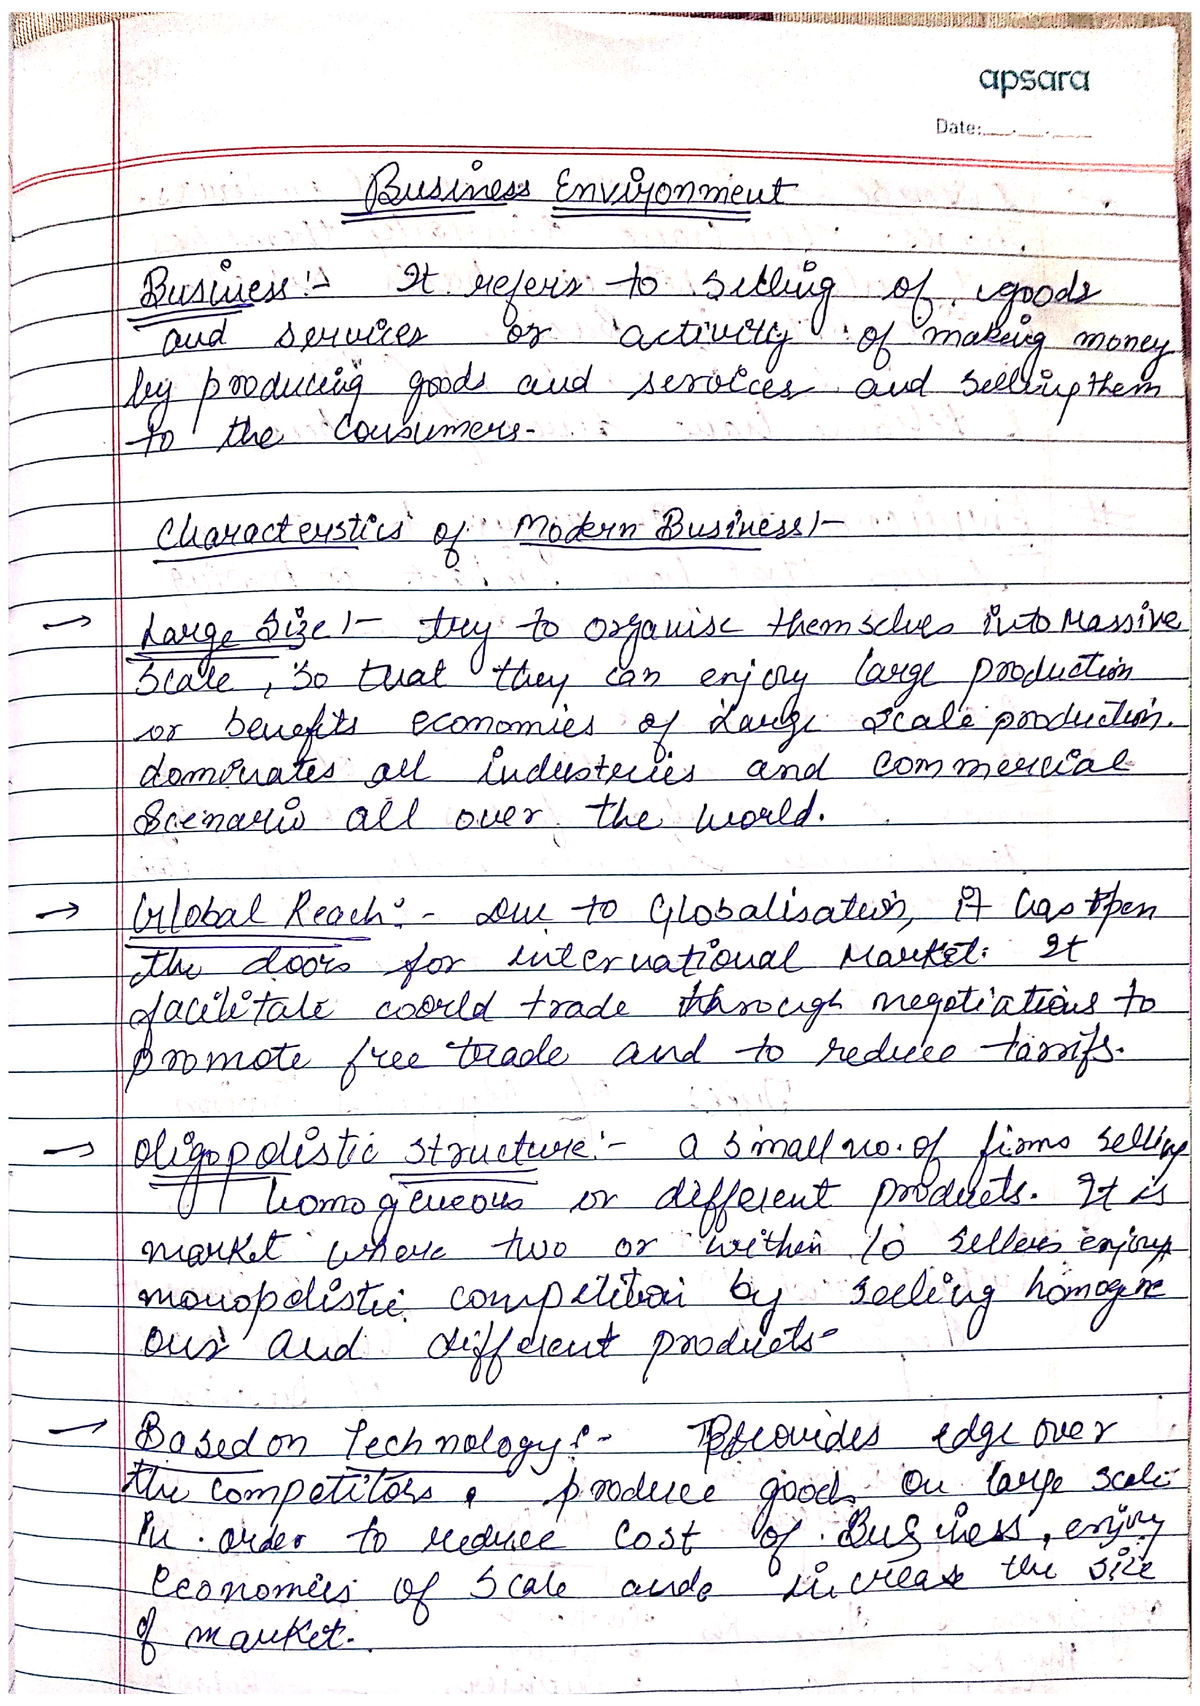 apsara
Date:
Business Environment
Business :- It refers to selling of goods
and services or activity of making money
by producing goods and services and selling them
to the consumers.
Characterstics of Modern Business :-
→ Large Size :- try to organise themselves into Massive
Scale, So that they can enjoy large production
or benefits economies of Large Scale production.
dominates all industries and commercial
Scenario all over the world.
→ Global Reach :- Due to Globalisation, it has open
the doors for international Market. It
facilitate world trade through negotiations to
promote free trade and to reduce tarrifs.
→ Oligopolistic structure :- a small no. of firms selling
homogeneous or different products. It is
market where two or within 10 sellers enjoys
monopolistic competition by selling homogene
ous and different products-
→ Based on Technology :- Provides edge over
the competitors, produce goods on large scale
In order to reduce cost of Business, enjoy
economies of scale and increase the size
of market.